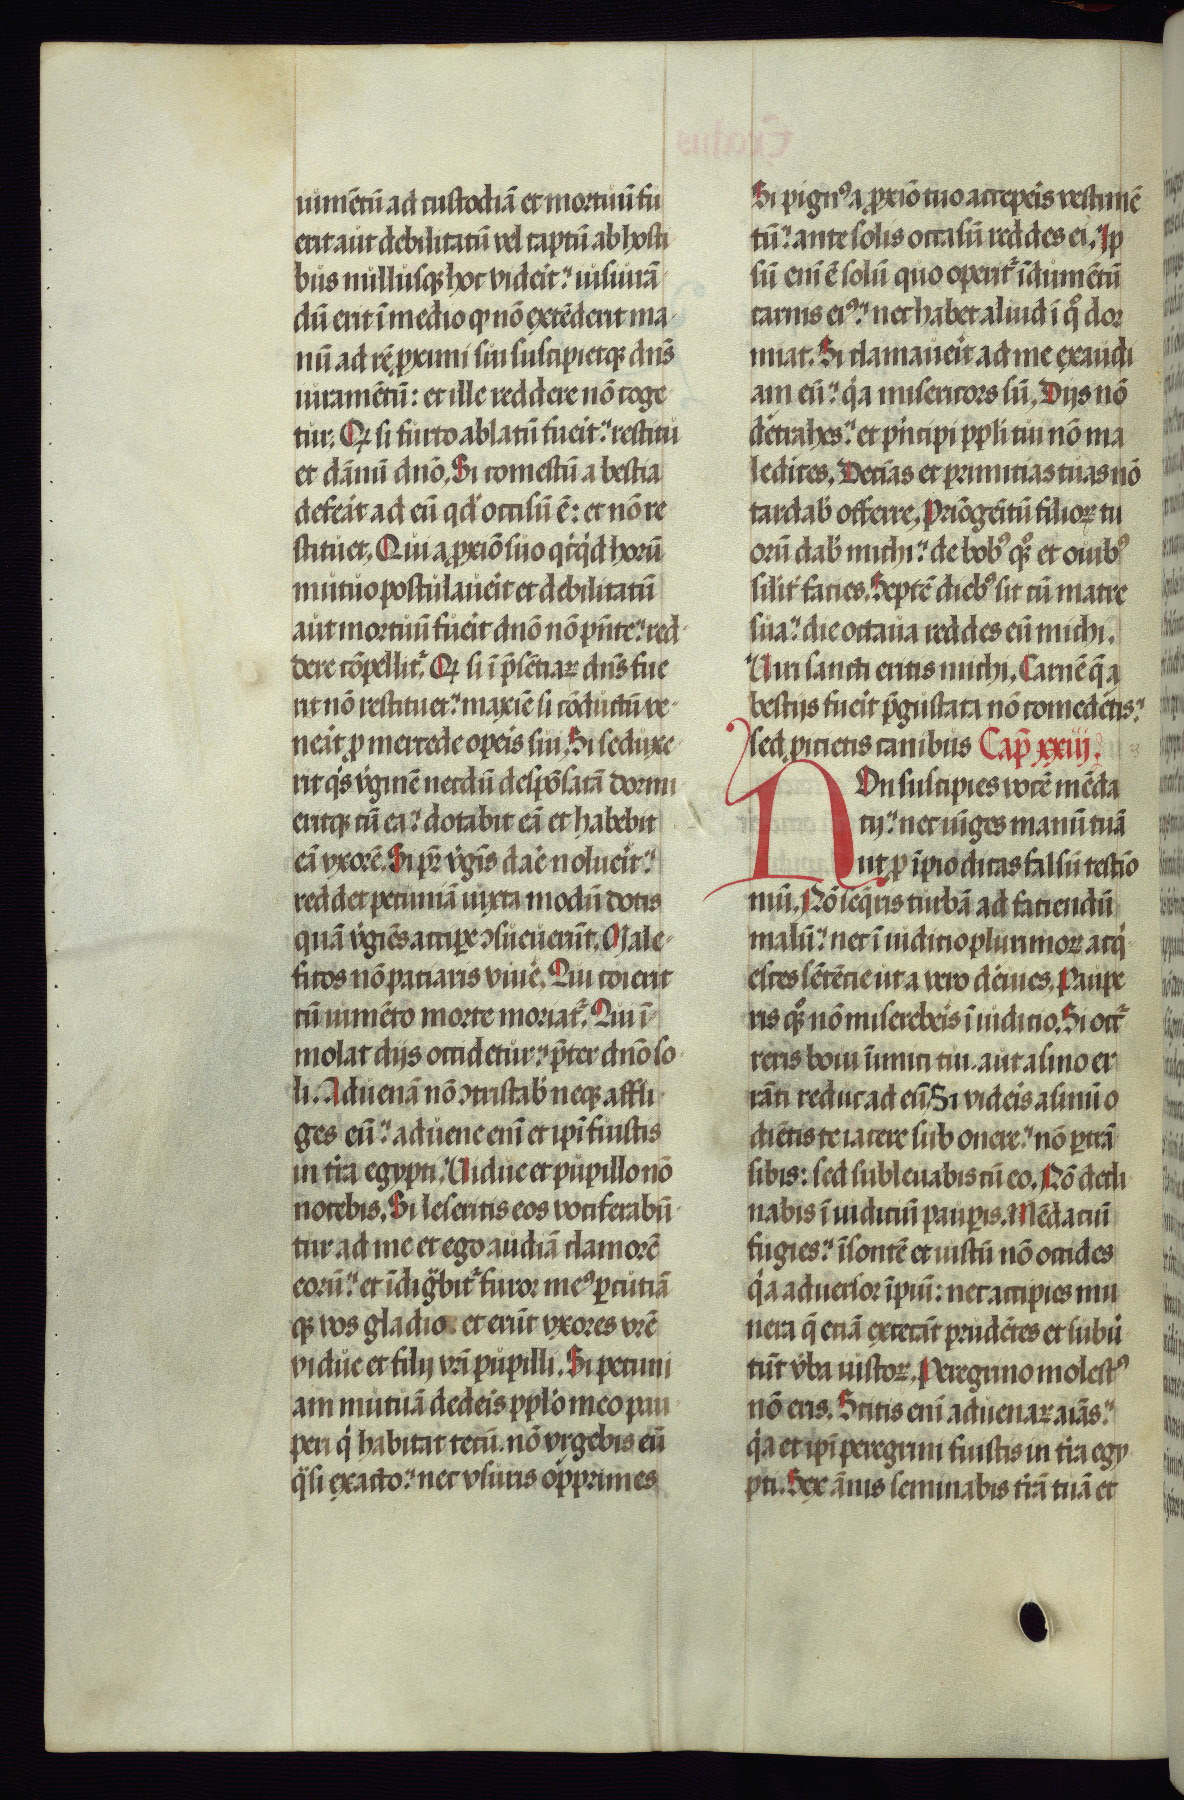 iumētū ad custodiā et mortuū fu
erit aut debilitatū vel captū ab hosti
bus nullusqꝫ hoc videit: iusiurā
dū erit ī medio qꝙ nō extēderit ma
nū ad rē ꝓximi sui suscipietqꝫ dns̄
iuramētū: et ille reddere nō coge
tur. Qꝙ si furto ablatū fueit: restitu
et dāmū dnō. Si comestū a bestia
defeāt ad eū qd' occisū ē: et nō re
stituet. Qui a ꝓxiō suo qͥcqͥd horū
mutuo postulaueit et debilitatū
aut mortuū fueit dnō nō p̄nte: red
dere cōpellit᷑. Qꝙ si ī p̄sētiaꝝ dns̄ fue
rit nō restituet: maxiē si cōductū ve
neāt ꝓ mercede opeis sui. Si seduxe
rit qͥs v̓ginē necdū despōsatā dormi
eritqꝫ cū ea: dotabit eā et habebit
eā vxorē. Si pr̄ v̓gīs dae nolueit:
reddet pecuniā iuxta modū dotis
quā v̓giēs accipe ꝯsueuerūt. Male
ficos nō patiaris viue. Qui coierit
cū iumēto morte moriat᷑. Qui ī
molat dijs occidetur: p̄ter dnō so
li. Aduenā nō ꝯtristab' neqꝫ affli
ges eū: aduene enī et ipī fuistis
in tr̄a egypti. Uidue et pupillo nō
nocebis. Si leseritis eos vociferabū
tur ad me et ego audiā clamorē
eorū: et īdigͣbit᷑ furor meꝰ ꝑcutiā
qꝫ vos gladio et erūt vxores vrē
vidue et filij vrī pupilli. Si pecuni
am mutuā dedeis ppl̓o meo pau
peri qͥ habitat tecū. nō vrgebis eū
qͣsi exacto: nec vsuris opprimes
Si pignꝰ a ꝓxiō tuo accepeis vestimē
tū: ante solis occasū reddes ei. Ip
sū enī ē solū quo operit᷑ īdumētū
carnis eiꝰ: nec habet aliud ī qͦ dor
miat. Si clamaueit ad me exaudi
am eū: qͥa misericors sū. Dijs nō
detrahes: et pͥncipi ppl̓i tui nō ma
ledices. Deciās et primitias tuas nō
tardab' offerre. Priōgeitū filioꝝ tu
orū dab' michi: de bobꝰ qͦꝫ et ouibꝰ
silit̓ facies. Septē diebꝰ sit cū matre
sua: die octaua reddes eū michi.
Uiri sancti eritis michi. Carnē q̄ a
bestijs fueit p̄gustata nō comedetis:
sed ꝓicietis canibus Cap̄ xxiij.
Non suscipies vocē mēda
cij: nec iūges manū tuā
ut ꝓ īpio dicas falsū testiō
niū. Nō seqͥris turbā ad faciendū
malū: nec ī iudicio plurimoꝝ acqͥ
esces sētēcie ut a vero deuies. Paupe
ris qͦꝫ nō miserebeis ī iudicio. Si occ᷑
reris boui īimici tui. aut asino er
rāti reduc ad eū. Si videis asinū o
diētis te iacere sub onere: nō ꝑtrā
sibis: sed subleuabis cū eo. Nō decli
nabis ī iudiciū pauꝑis. Mēdaciū
fugies: īsontē et iustū nō occides
qͥa aduersor īpiū: nec accipies mu
nera q̄ etiā excecāt prudētes et subū
tūt v̓ba iustoꝝ. Peregrino molestꝰ
nō eris. Scitis enī aduenaꝝ aīas:
qͥa et ipī peregrini fuistis in tr̄a egy
pti. Sex ānis seminabis tr̄ā tuā et